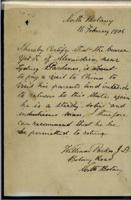 North Botany
15 February 1906
I hereby Certify that the bearer
of Alexandria, near
Botany, is about
to pay a visit to China to
visit his parents and intends
to return to this State again
he is a steady, sober and
industrious man, I therefore
can recommend that he be
be permitted to return
William J.P.
Botany Road
North Botany